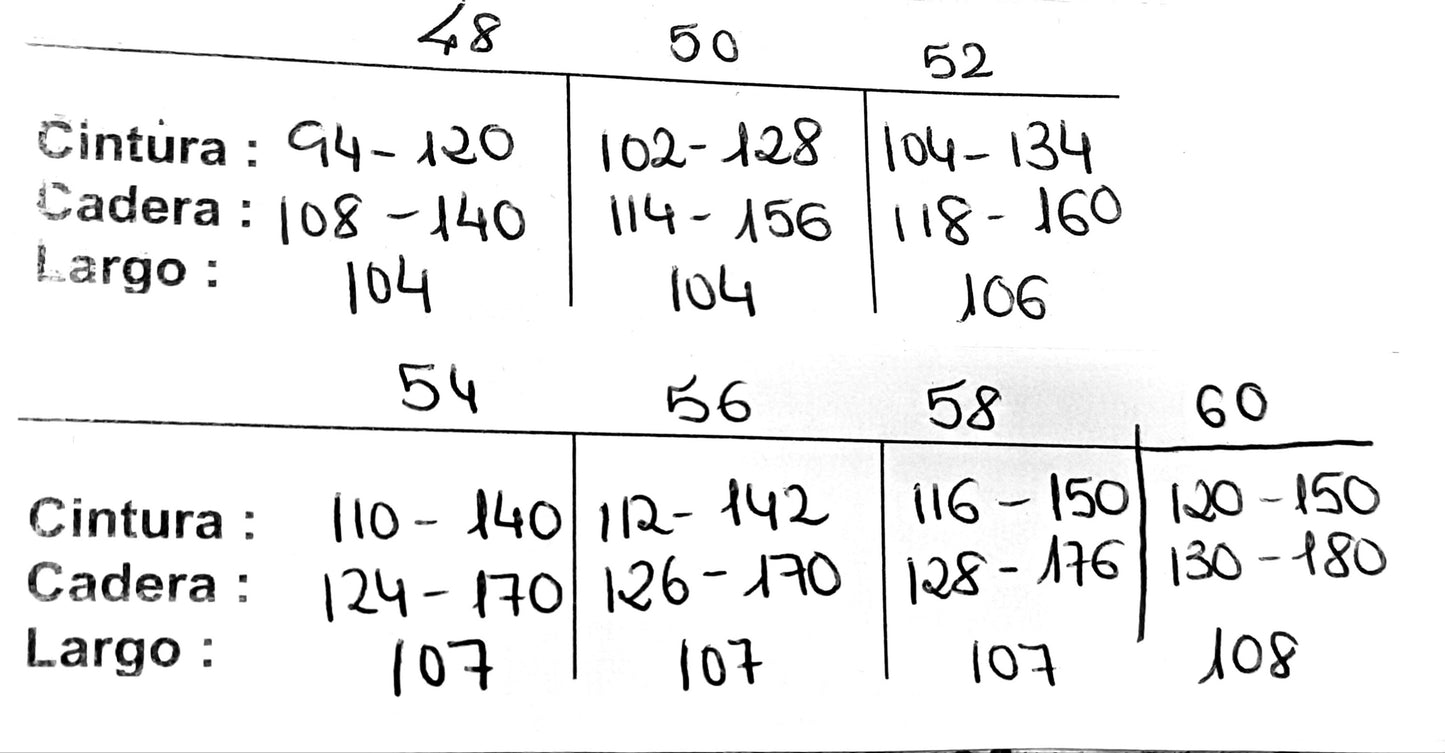 48 50 52
Cintura : 94-120 102-128 104-134
Cadera : 108-140 114-156 118-160
Largo : 104 104 106
54 56 58 60
Cintura : 110-140 112-142 116-150 120-150
Cadera : 124-170 126-170 128-176 130-180
Largo : 107 107 107 108